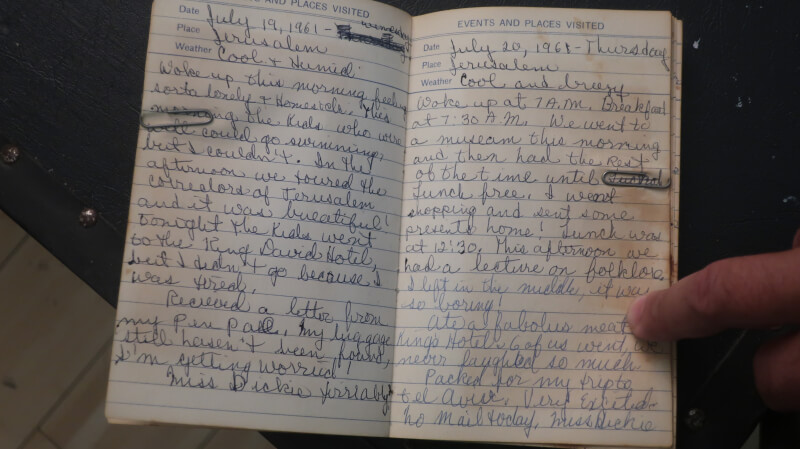 EVENTS AND PLACES VISITED
Date July 19, 1961 - wensday
Place Jerusalem
Weather Cool & Humid
Woke up this morning feeling
sorta lonely & Homesick. This
morning the Kids who were
could go swimming,
but I couldn't. In the
afternoon we toured the
of Jerusalem
and it was bueatiful!
Tonight the Kids went
to the King David Hotel,
but I didn't go because I
was tired.
Recieved a letter from
my Pen Pal. My luggage
still hasen't been found,
I'm getting worried
Miss Dickie
EVENTS AND PLACES VISITED
Date July 20, 1961 - Thursday
Place Jerusalem
Weather Cool and breezy
Woke up at 7 A.M. Breakfast
at 7:30 A.M. We went to
a museam this morning
and then had the Rest
of the time until
lunch free. I went
shopping and sent some
presents home! Lunch was
at 12:30. This afternoon we
had a lecture on folklore,
I left in the middle, it was
so boring!
Ate a fabolus meat
Kings Hotel. 6 of us went,
never laughed so much
Packed for my trip to
tel Aviv. Very Excited
no mail today, Miss Dickie